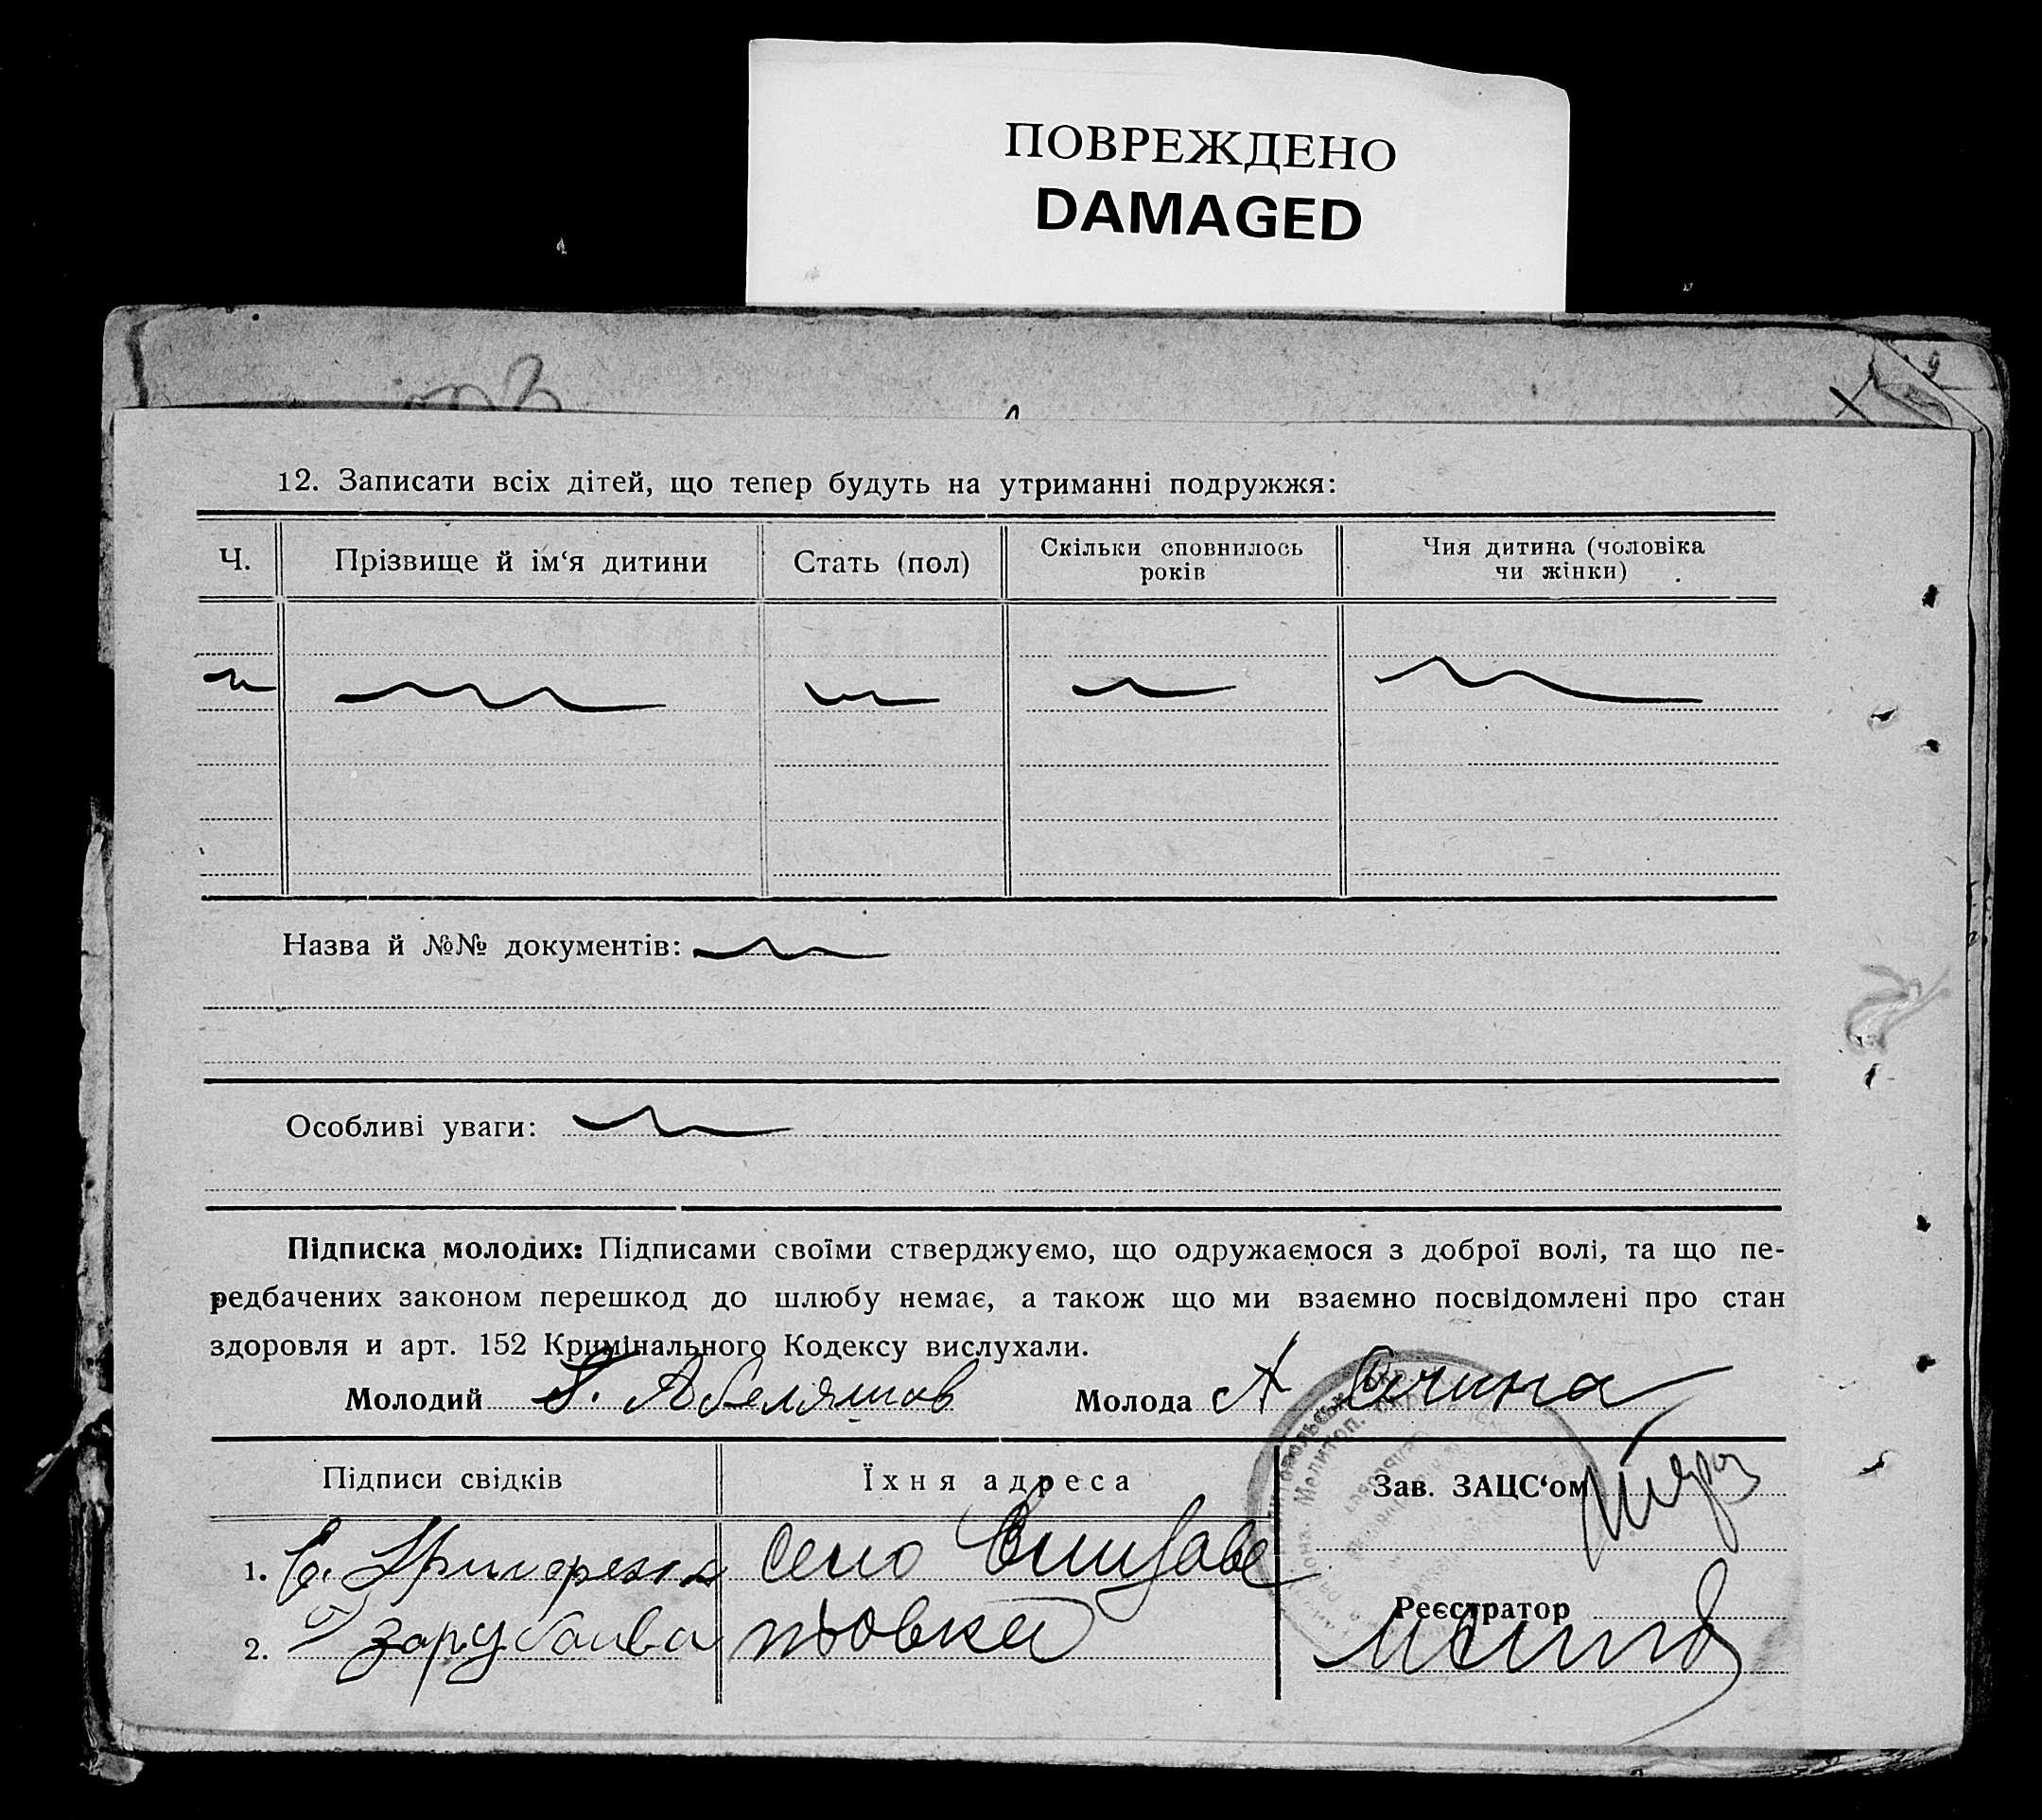 ПОВРЕЖДЕНО
DAMAGED
12. Записати всіх дітей, що тепер будуть на утриманні подружжя:
Ч. Прізвище й ім‘я дитини Стать (пол) Скільки сповнилось років Чия дитина (чоловіка чи жінки)
Назва й №№ документів:
Особливі уваги:
Підписка молодих: Підписами своїми стверджуємо, що одружаємося з доброї волі, та що пе-
редбачених законом перешкод до шлюбу немає, а також що ми взаємно посвідомлені про стан
здоровля и арт. 152 Кримінального Кодексу вислухали.
Молодий Абеляшов Молода А
Підписи свідків Їхня адреса Зав. ЗАЦС‘ом
1. село Елизаве
2. тьовка
Реєстратор